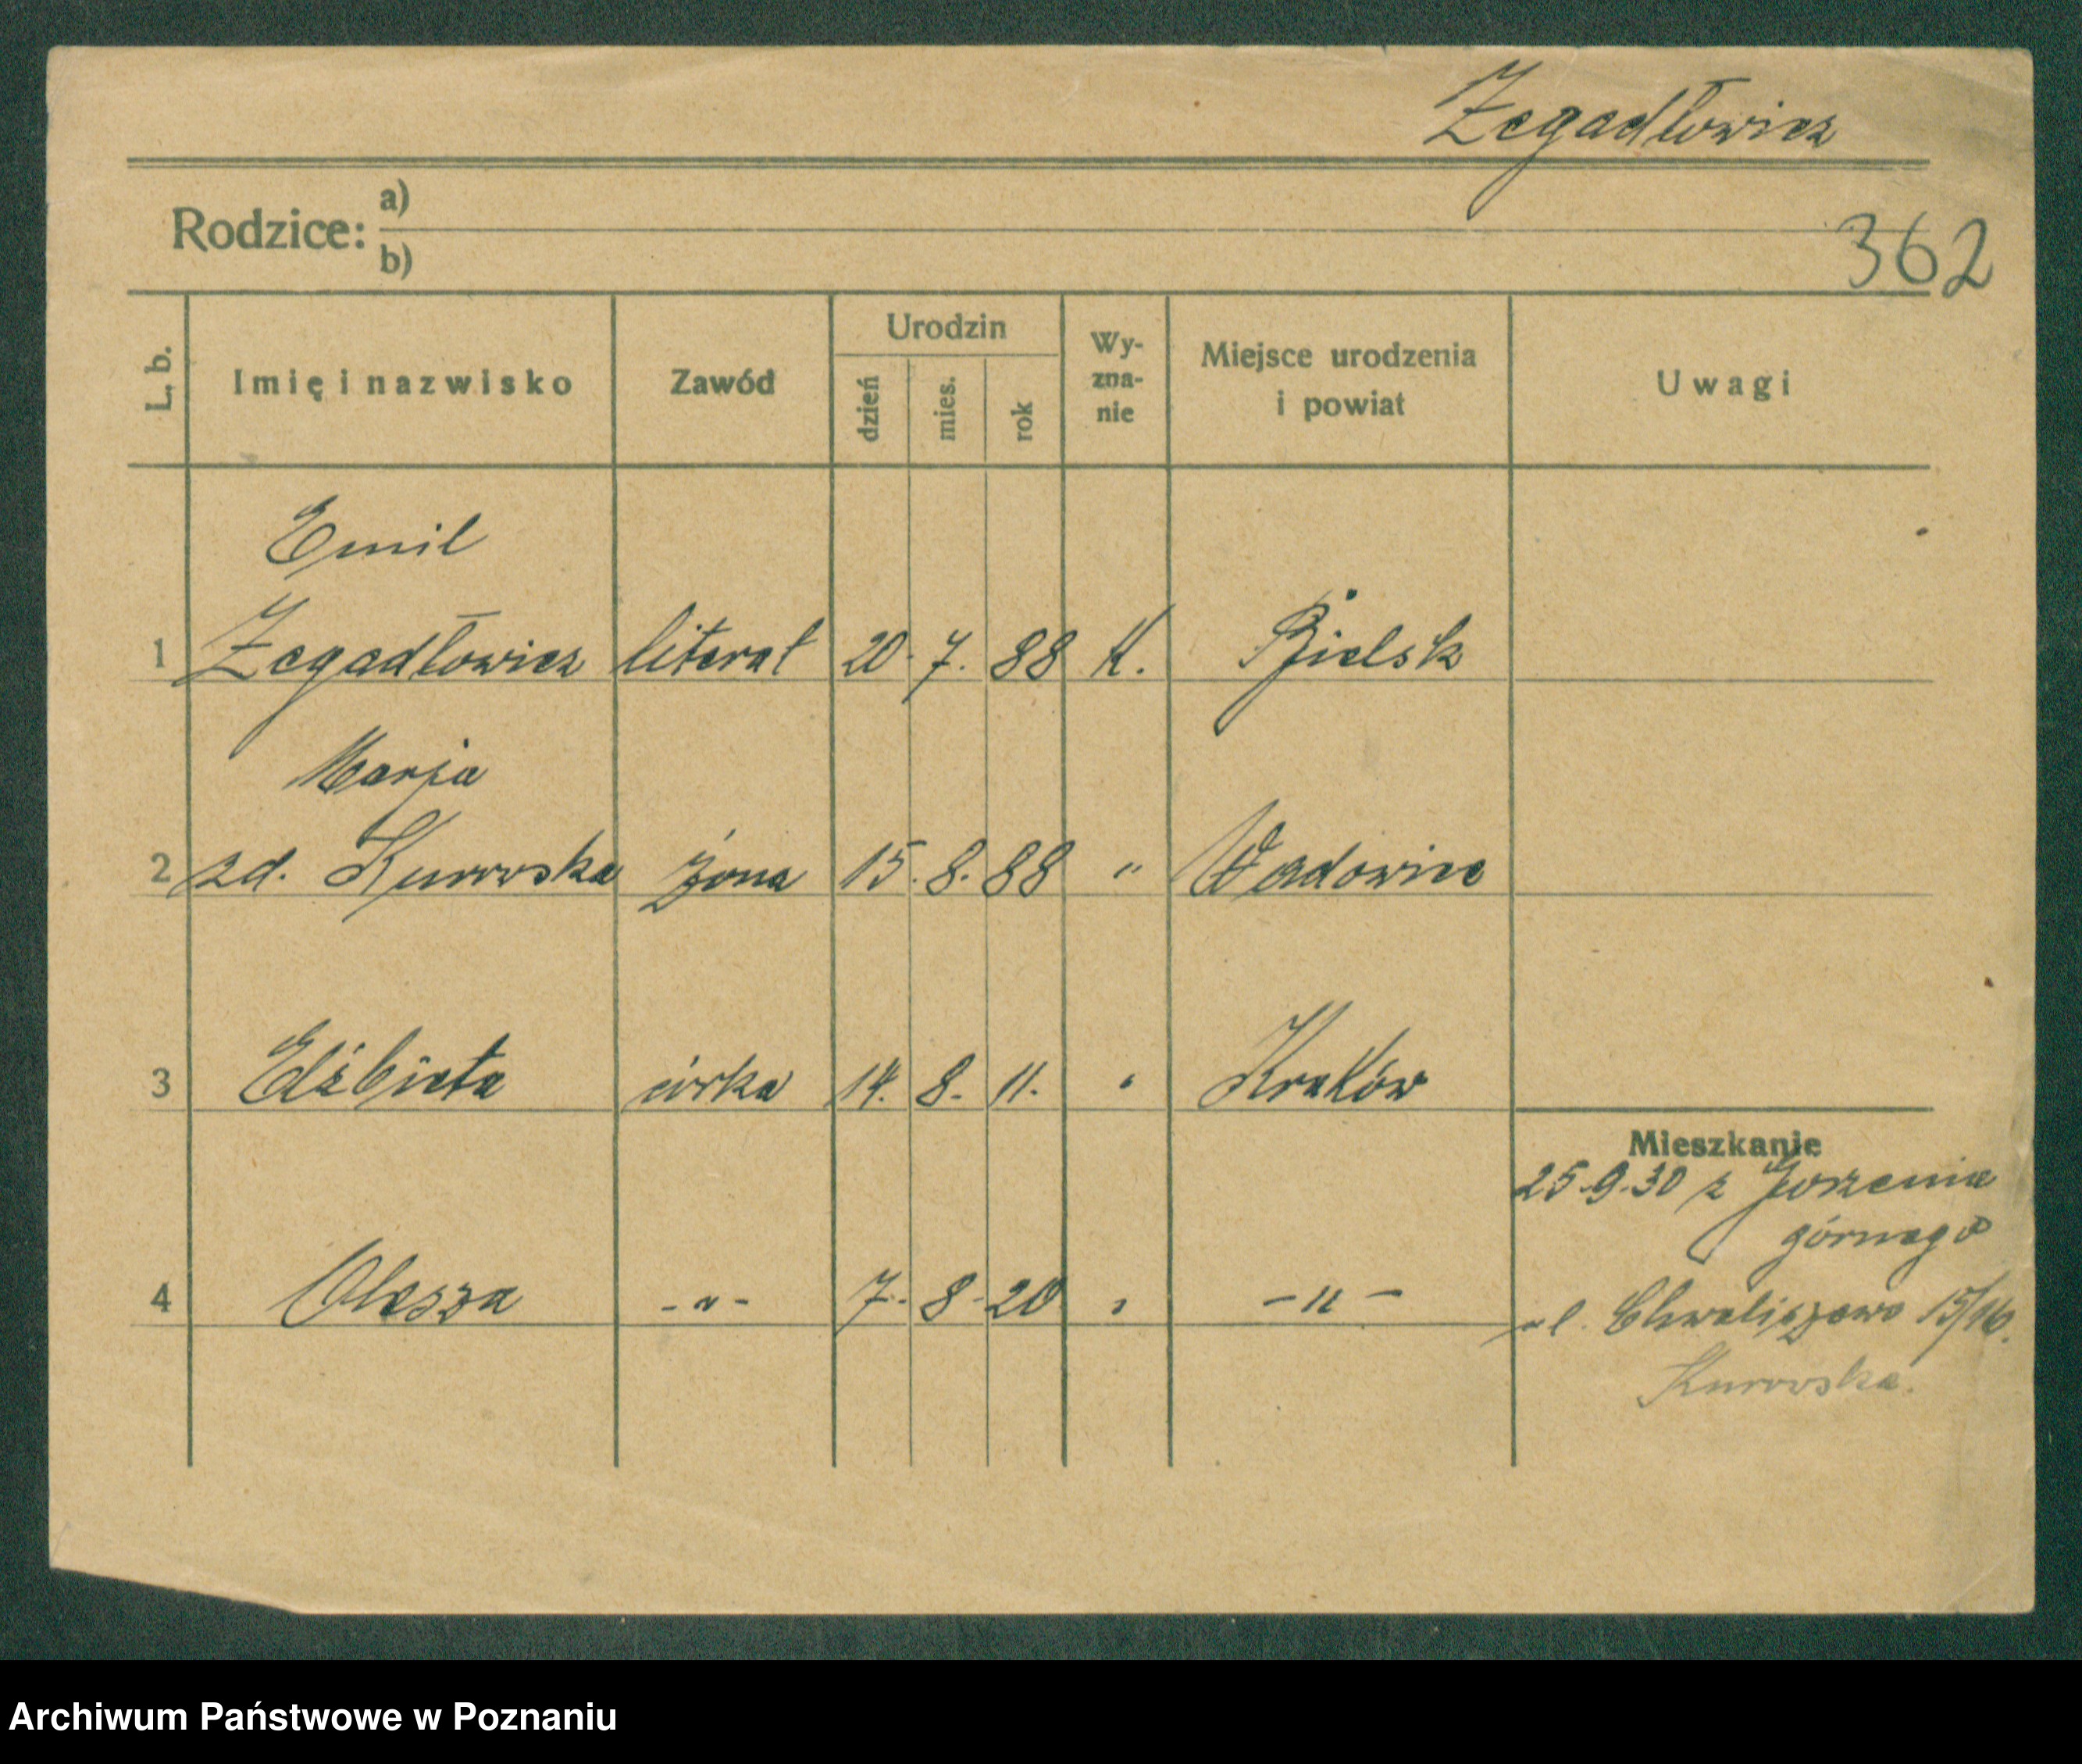 Zegadłowicz
Rodzice: a)
b)
362
L. b. Imię i nazwisko Zawód Urodzin dzień mies. rok Wy-zna-nie Miejsce urodzenia i powiat Uwagi
Emil
1 Zegadłowicz literat 20. 7. 88 K. Bielsk
Marja
2 zd. Kurowska żona 15. 8. 88 " Wadowice
3 Elżbieta córka 14. 8. 11. " Kraków
Mieszkanie
25.9.30 z Gorzenia
górnego
4 -"- 7. 8. 20 " -"- ul. Chwaliszewo 15/16.
Kurowska.
Archiwum Państwowe w Poznaniu